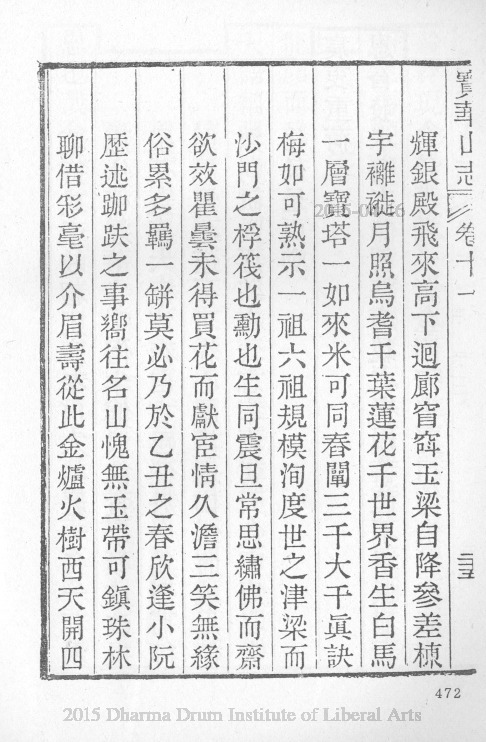 寶華山志 卷十一
三五
輝銀殿飛來高下迴廊窅窱玉梁自降參差棟
宇襳襹月照烏耆千葉蓮花千世界香生白馬
一層寶塔一如來米可同舂闡三千大千眞訣
梅如可熟示一祖六祖規模洵度世之津梁而
沙門之桴筏也勳也生同震旦常思繡佛而齋
欲效瞿曇未得買花而獻宦情久澹三笑無緣
俗累多羈一缾莫必乃於乙丑之春欣逢小阮
歷述跏趺之事嚮往名山愧無玉帶可鎭珠林
聊借彩毫以介眉壽從此金爐火樹西天開四
472
2015 Dharma Drum Institute of Liberal Arts